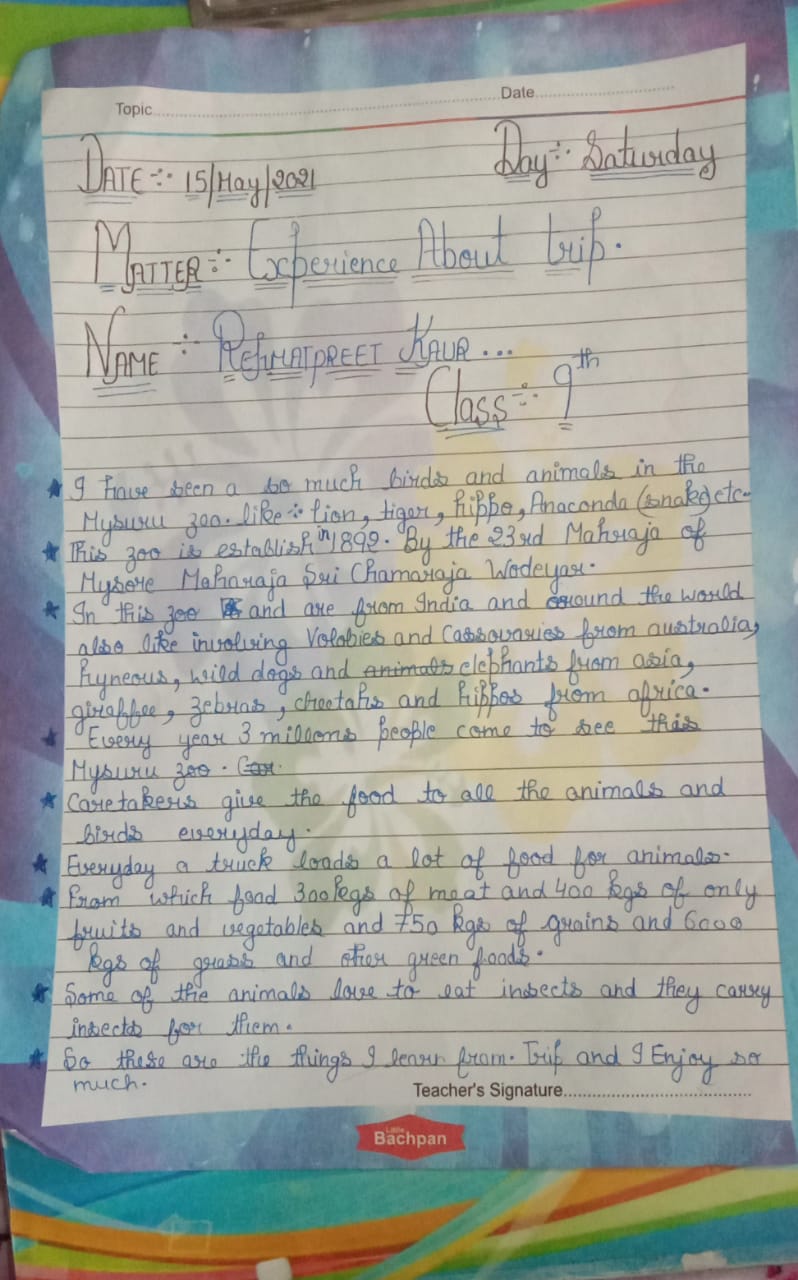 Topic........ Date........
DATE :- 15/May/2021 Day :- Saturday
MATTER :- Experience About trip.
NAME :- REHMATPREET KAUR...
Class :- 9th
★ I have been a so much birds and animals in the
Mysuru zoo. like :- lion, tiger, hippo, Anaconda (snake) etc.
★ This zoo is establish in 1892. By the 23rd Mahraja of
Mysore Maharaja Sri Chamaraja Wodeyar.
★ In this zoo and are from India and around the world
also like involving Volabies and Cassovaries from australia,
hyneous, wild dogs and animals elephants from asia,
giraffee, zebras, cheetahs and hippos from africa.
★ Every year 3 millions people come to see this
Mysuru zoo.
★ Caretakers give the food to all the animals and
birds everyday.
★ Everyday a truck loads a lot of food for animals.
★ From which food 300 kgs of meat and 400 kgs of only
fruits and vegetables and 750 kgs of grains and 6000
kgs of grass and other green foods.
★ Some of the animals love to eat insects and they carry
insects for them.
★ So these are the things I learn from. Trip and I Enjoy so
much.
Teacher's Signature........
Little
Bachpan